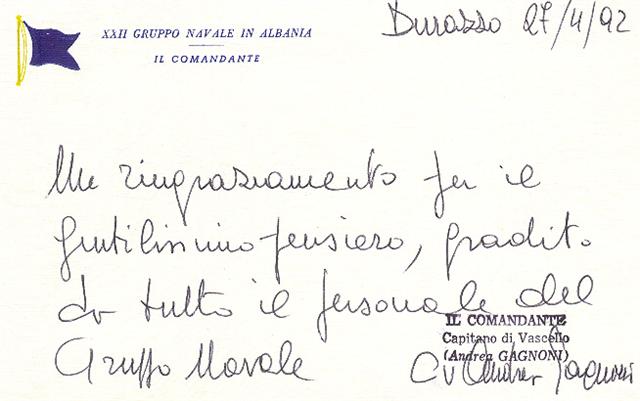 XXII GRUPPO NAVALE IN ALBANIA
IL COMANDANTE
Durazzo 27/4/92
Un ringraziamento per il
gentilissimo pensiero, gradito
da tutto il personale del
Gruppo Navale
IL COMANDANTE
Capitano di Vascello
(Andrea GAGNONI)
CV Andrea Gagnoni